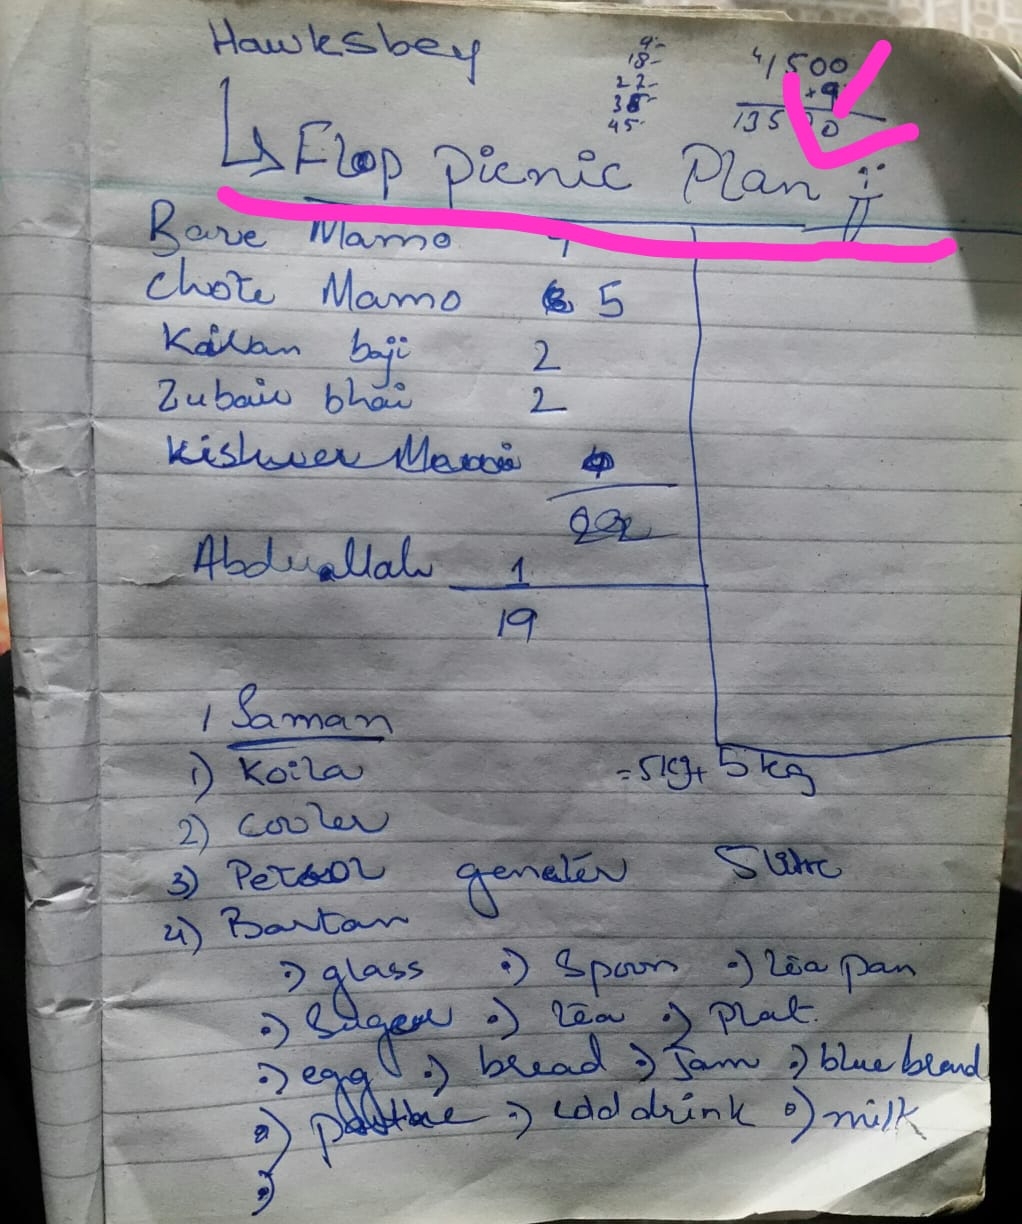 Hawksbey
9-
18-
22-
36-
45-
1500
+9
13500
Flop Picnic Plan
Bare Mamo 7
Chote Mamo 5
Kailan baji 2
Zubair bhai 2
Kishwer Mami
22
Abduallah 1
19
Saman
1) Koila =5kg+5kg
2) Cooler
3) Petrol genetér 5 litre
4) Bartan
glass Spoon tea pan
Suger tea Plat.
egg bread Jam blue band
cold drink milk